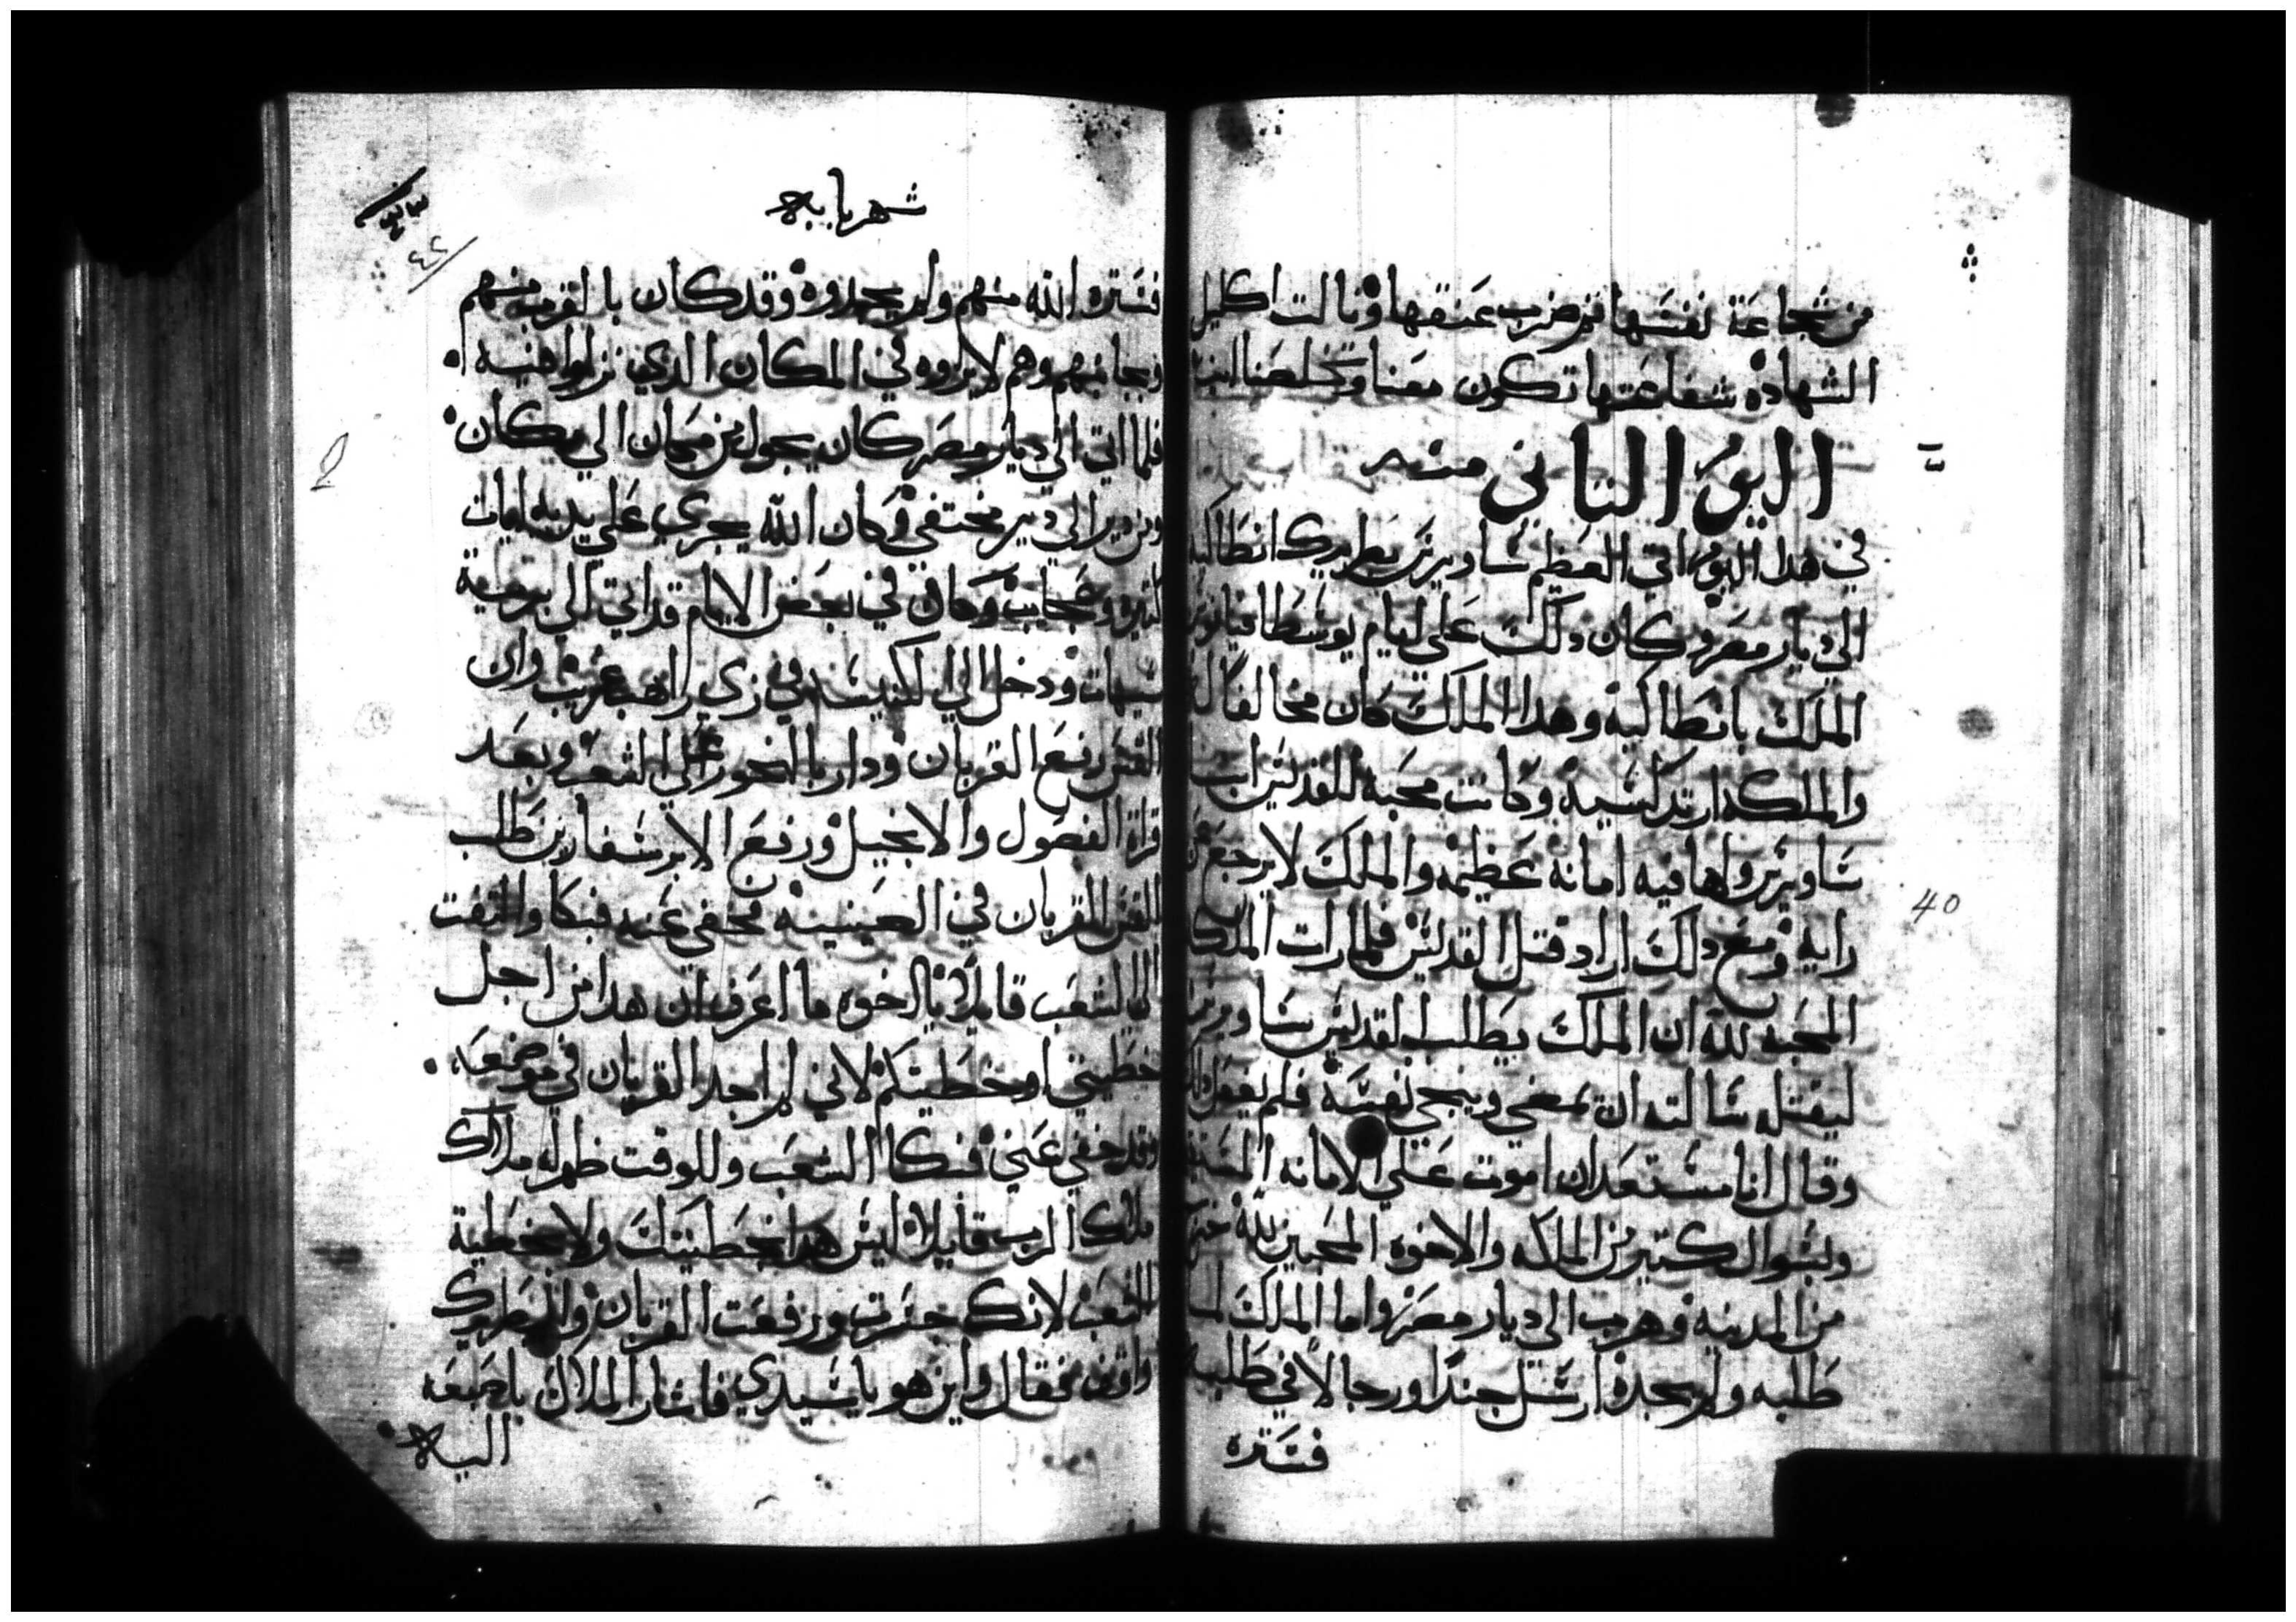 من شجاعة نفسها فمر ضرب عنقها ونالت اكليل
الشهاده شفاعتها تكون معنا وتخلصنا امين
اليوم التاني منه
في هدا اليوم اتي العظيم ساويرس بطريرك انطاكيه
الي ديار مصر وكان دلك علي ايام يوسطاقيانوس
الملك بانطاكيه وهدا الملك كان مخالفا
والملكه ارتدكسيه وكانت محبه للقديس انبا
ساويرس ولها فيه امانه عظيمه والملك لا يرجع عن
رايه ومع دلك اراد قتل القديس فلما رات الملكه
المحبه لله ان الملك يطلب القديس ساويرس
ليقتله سالته ان يمضي وينجي نفسه فلم يفعل دلك
وقال انا مستعد ان اموت علي الامانه
وبسوال كتير من الملكه والاخوه المحبين لله خرج
من المدينه وهرب الي ديار مصر واما الملك لما
طلبه ولم يجده ارسل جندا ورجالا في طلبه
فستره
شهر بابه
٤٤
فستره الله منهم ولم يجدوه وقد كان بالقرب منهم
وبجانبهم وهم لا يروه في المكان الدي نزلوا فيه
فلما اتي الي ديار مصر كان يجول من مكان الي مكان
ومن دير الي دير مختفي وكان الله يجري علي يديه ايات
كتيره وعجايب وكان في بعض الايام قد اتي الي برية
شيهات ودخل الي الكنيسه في زي راهب غريب وان
القس رفع القربان ودار بالبخور علي الشعب وبعد
قراة الفصول والانجيل ورفع الابرسفارين طلب
القس القربان في الصينيه مخفي عنه فبكا والتفت
الي الشعب قايلا يا اخوه ما اعرف ان هدا من اجل
خطيتي او خطيتكم لاني لم اجد القربان في موضعه
وقد خفي عني فبكا الشعب وللوقت ظهر له ملاك
ملاك الرب قايلا ليس هدا بخطيتك ولا بخطية
الشعب لانك جسرت ورفعت القربان والبطريرك
واقف فقال واين هو يا سيدي فاشار الملاك باصبعه
اليه
40